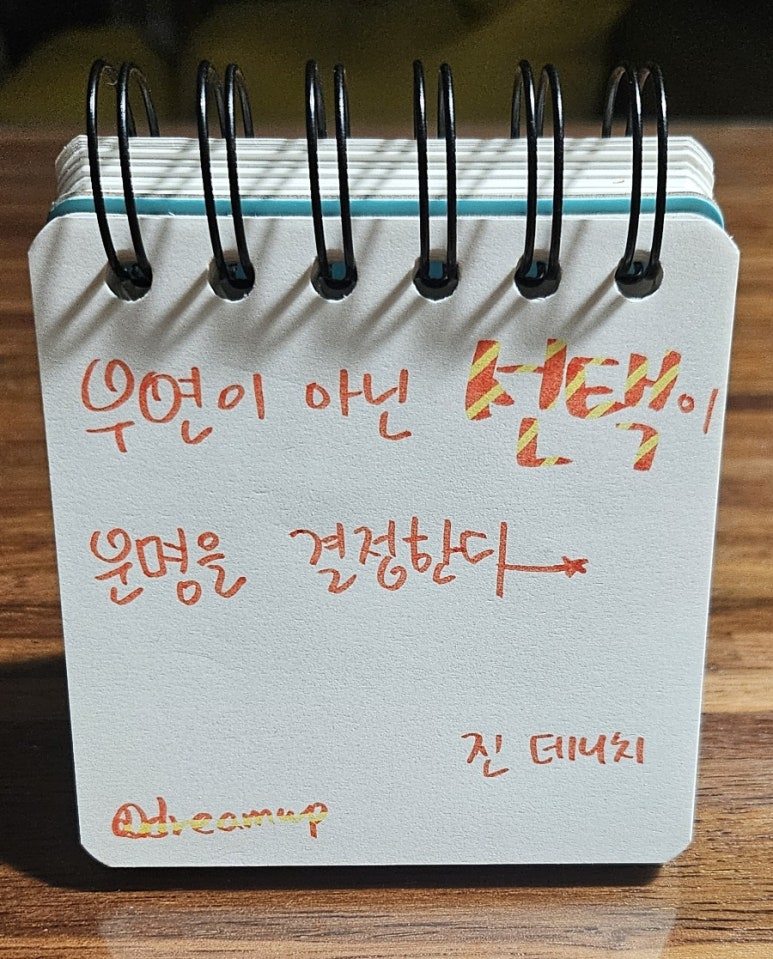 우연이 아닌 선택이
운명을 결정한다
진 데니치
@dreamup